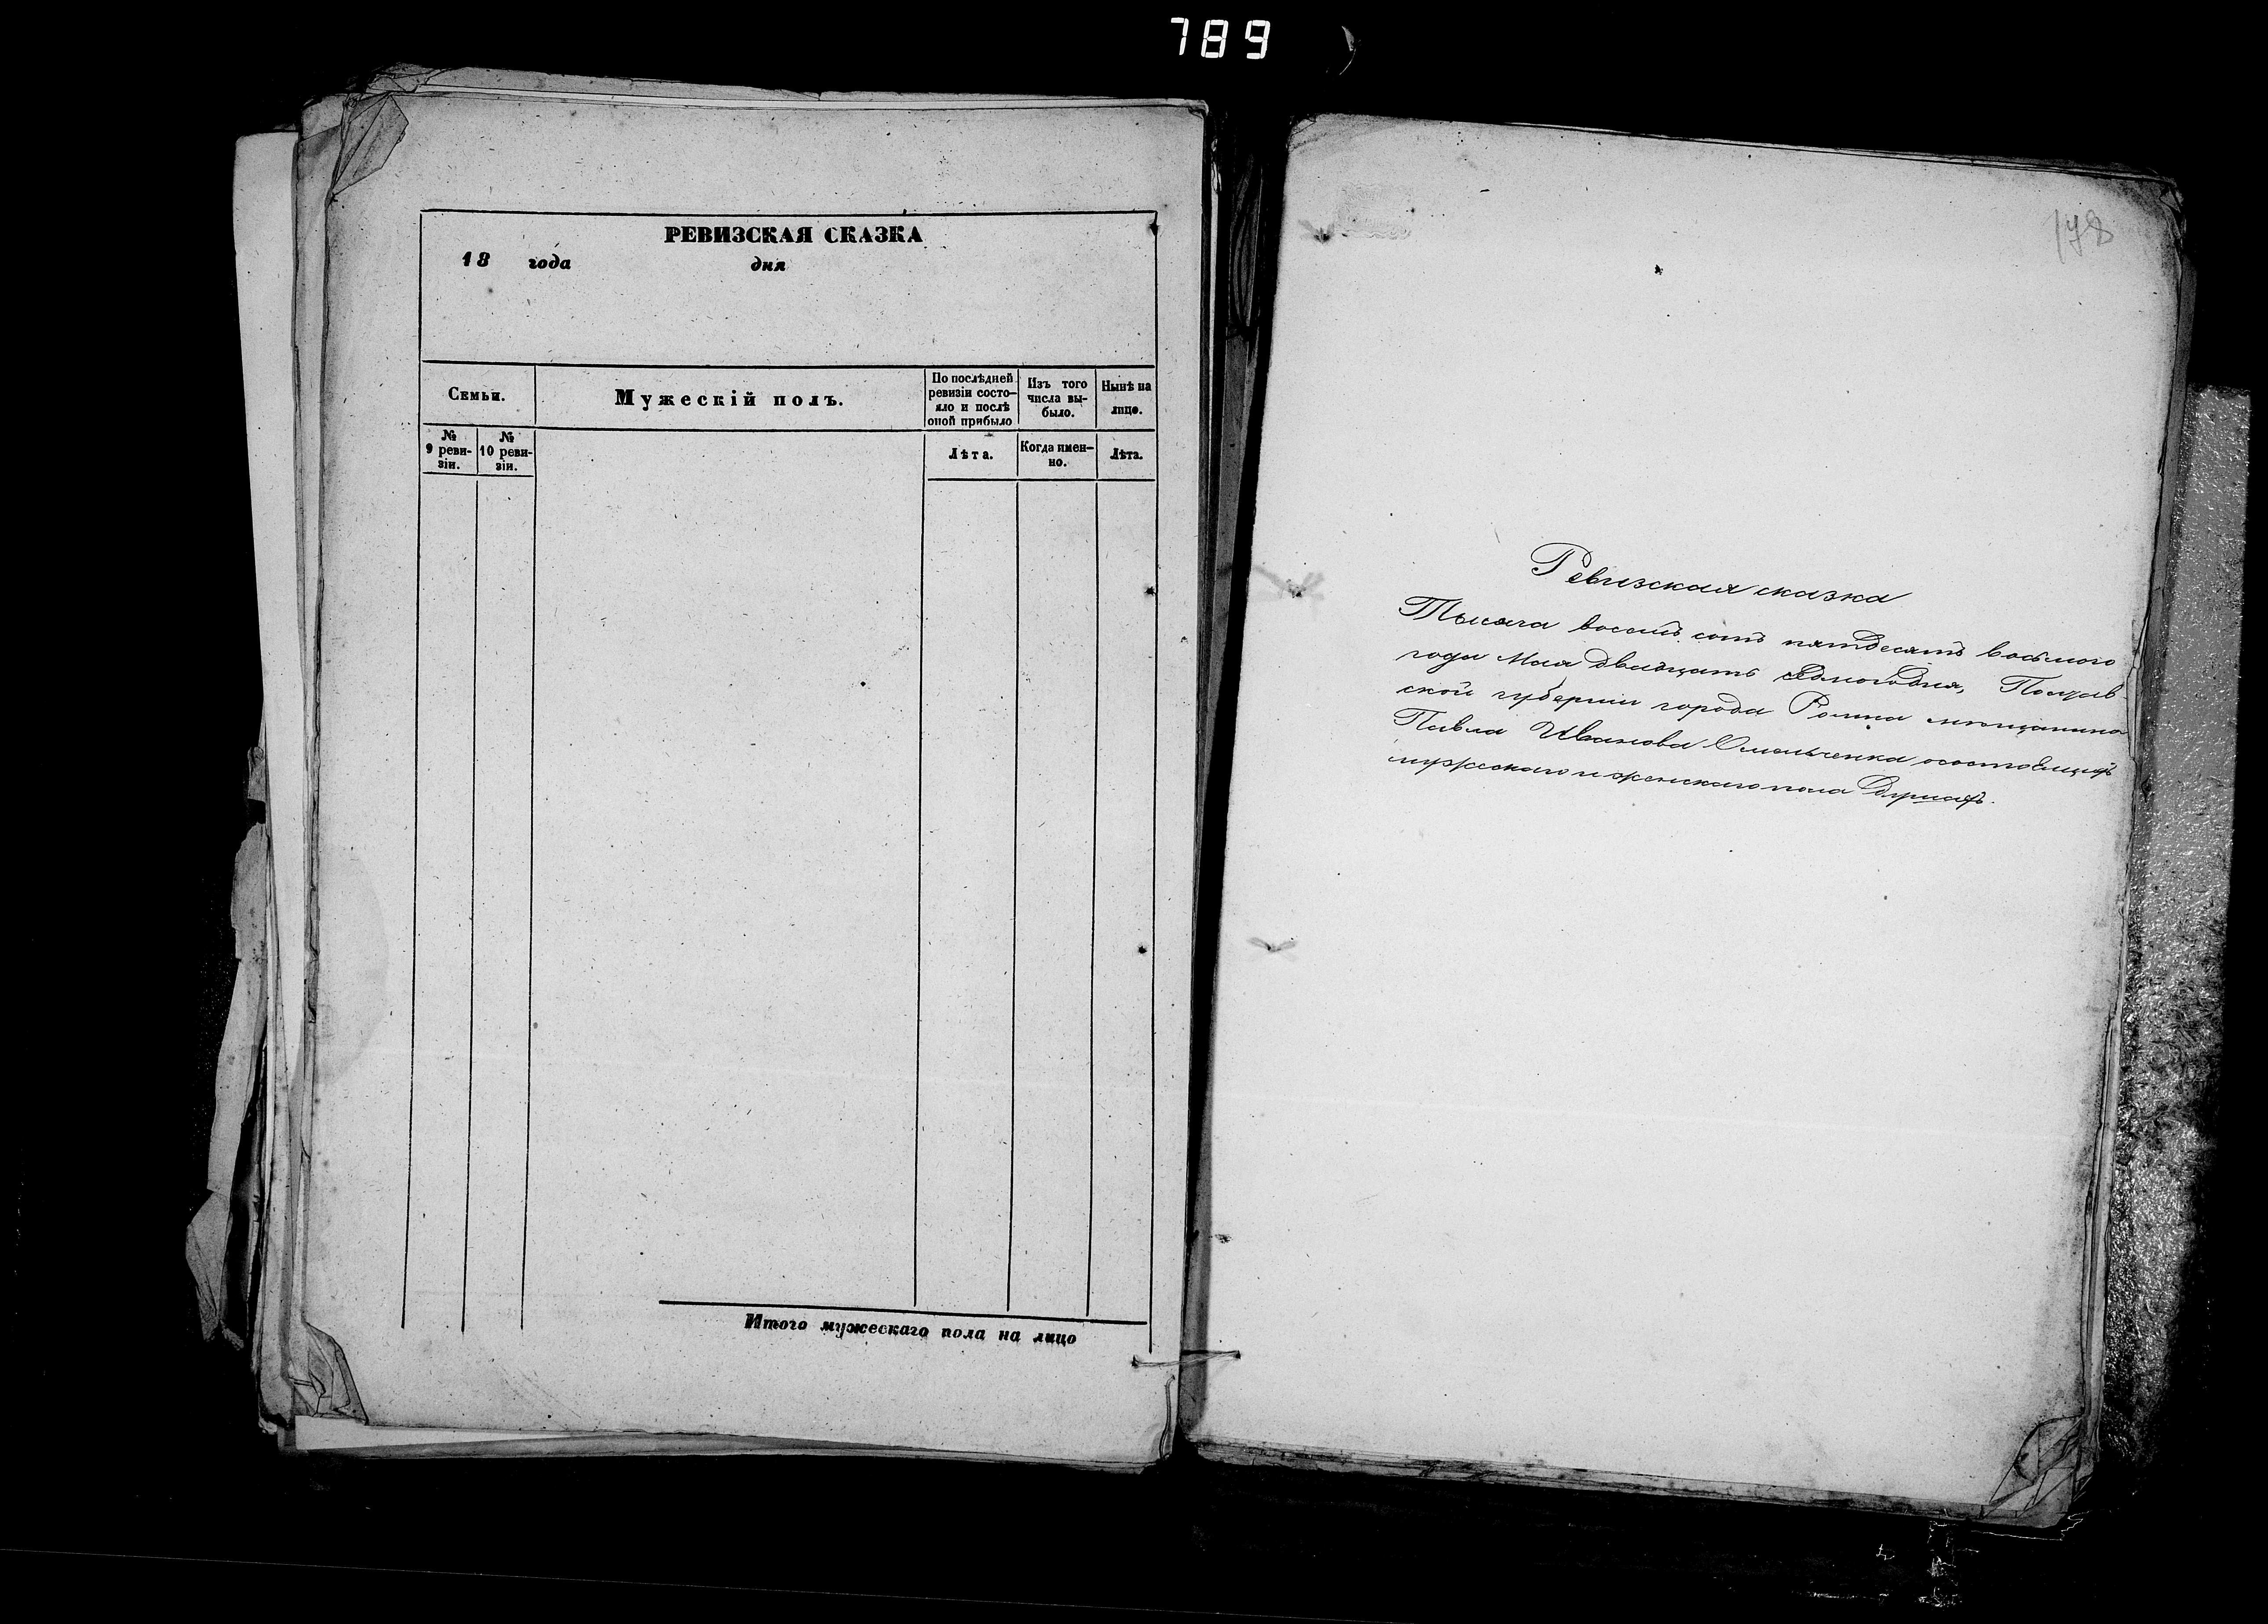 789
РЕВИЗСКАЯ СКАЗКА
18 года дня
Семьи.
Мужескій полъ.
По послѣдней
ревизіи состо-
яло и послѣ
оной прибыло
Изъ того
числа вы-
было.
Нынѣ на
лицо.
№
9 реви-
зіи.
№
10 реви-
зіи.
Лѣта.
Когда имен-
но.
Лѣта.
Итого мужескаго пола на лицо
178
Ревизская сказка
Тысяча восемь сотъ пятдесятъ восьмого
года Мая двадцать седмого дня, Полтав-
ской губерніи города Ромна мѣщанина
Павла Иванова Омельченка о состоящихъ
мужескаго и женскаго пола душахъ.